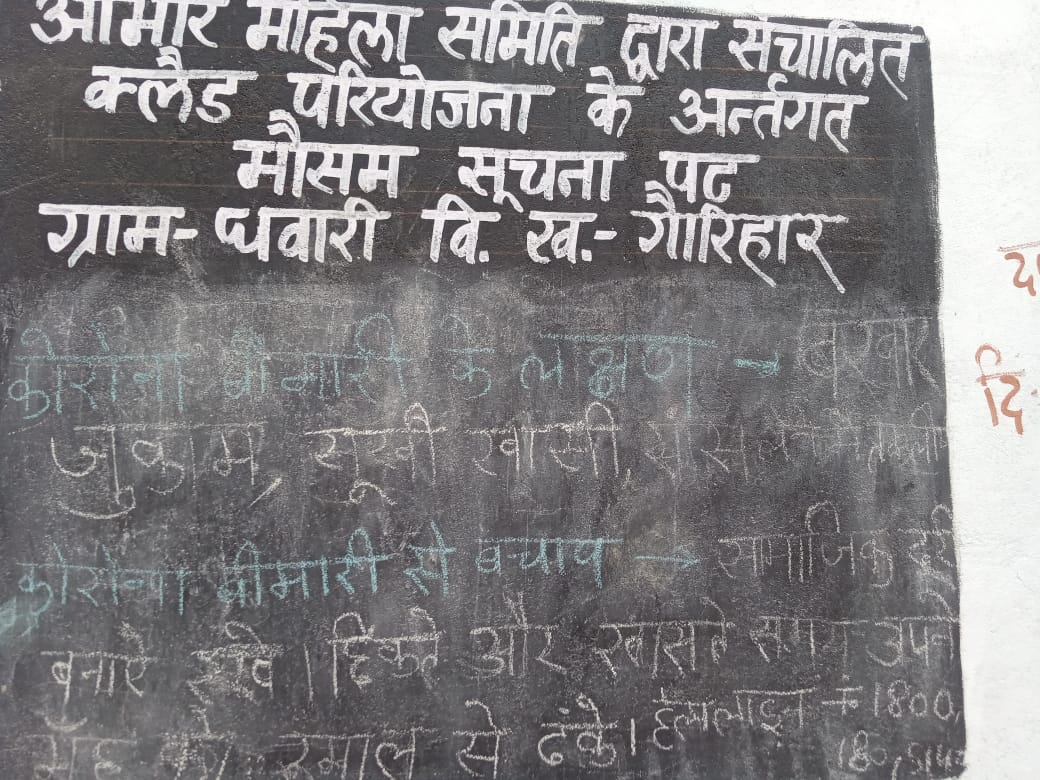 आभार महिला समिति द्वारा संचालित
क्लैड परियोजना के अर्न्तगत
मौसम सूचना पट
ग्राम- धवारी वि. ख.- गौरिहार
कोरोना बीमारी के लक्षण → बुखार
जुकाम, सूखी खासी,
कोरोना बीमारी से बचाव → सामाजिक दूरी
बनाऐ रखे। छिकते और खासते समय अपने
रुमाल से ढंके। हेल्पलाइन
दि